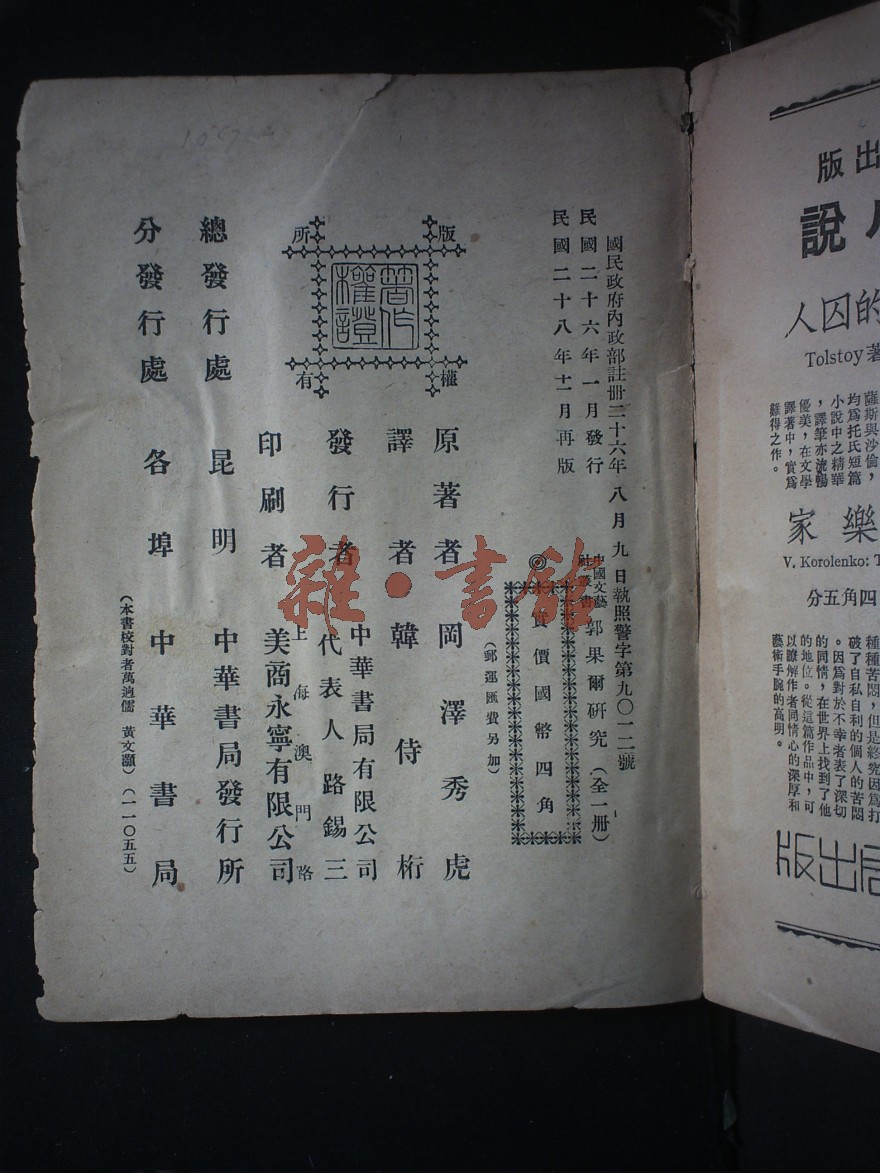 國民政府內政部註冊二十六年八月九日執照警字第九〇一二號
民國二十六年一月發行
民國二十八年十一月再版
中國文藝社叢書
郭果爾研究（全一冊）
◎實價國幣四角
（郵運匯費另加）
原著者 岡澤秀虎
譯者 韓侍桁
發行者 中華書局有限公司
代表人路錫三
上海澳門路
印刷者 美商永寧有限公司
總發行處 昆明 中華書局發行所
分發行處 各埠 中華書局
（本書校對者萬迺儒 黃文灝）（一一〇五五）
版權所有
著作權證
雜·書館
出版
說
的囚人
Tolstoy著
薩斯與沙倫，
均爲托氏短篇
小說中之精華
，譯筆亦流暢
優美，在文學
譯著中，實爲
難得之作。
樂家
V. Korolenko: T
四角五分
種種苦悶，但是終究因爲打
破了自私自利的個人的苦悶
。因爲對於不幸者表了深切
的同情，在世界上找到了他
的地位。從這篇作品中，可
以瞭解作者同情心的深厚和
藝術手腕的高明。
局出版